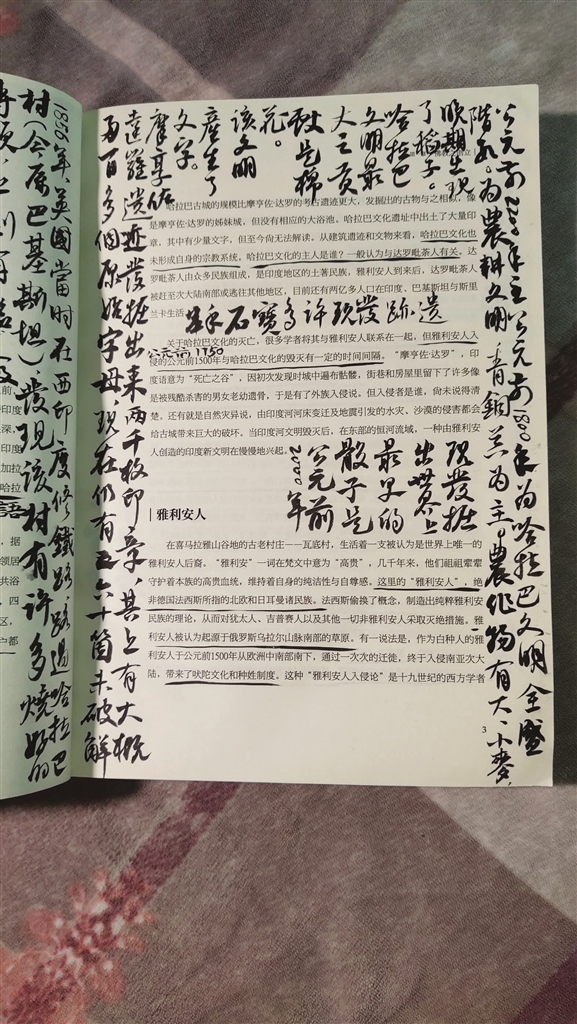 公元前2200年至公元前1800年为哈拉巴文明全盛
階段。为農耕文明，青銅器为主。農作物有大、小麥，
晚期出现
了稻子。
哈拉巴
文明最
大之貢
献是棉
花。
該文明
產生了
文字。
摩亨佐
達羅遺迹發掘出来两千枚印章，其上有大概
两百多個原始字母，现在仍有五六十箇未破解
哈拉巴古城的规模比摩亨佐·达罗的考古遗迹更大，发掘出的古物与之相似，像
是摩亨佐·达罗的姊妹城，但没有相应的大浴池。哈拉巴文化遗址中出土了大量印
章，其中有少量文字，但至今尚无法解读。从建筑遗迹和文物来看，哈拉巴文化也
未形成自身的宗教系统。哈拉巴文化的主人是谁？一般认为与达罗毗荼人有关。达
罗毗荼人由众多民族组成，是印度地区的土著民族，雅利安人到来后，达罗毗荼人
被赶至次大陆南部或逃往其他地区，目前还有两亿多人口在印度、巴基斯坦与斯里
兰卡生活。
遗跡發现許多寶石
关于哈拉巴文化的灭亡，很多学者将其与雅利安人联系在一起，但雅利安人入
公元前1750
侵的公元前1500年与哈拉巴文化的毁灭有一定的时间间隔。“摩亨佐·达罗”，印
度语意为“死亡之谷”，因初次发现时城中遍布骷髅，街巷和房屋里留下了许多像
是被残酷杀害的男女老幼遗骨，于是有了外族入侵说。但入侵者是谁，尚未说得清
楚。还有就是自然灾异说，由印度河河床变迁及地震引发的水灾、沙漠的侵害都会
给古城带来巨大的破坏。当印度河文明毁灭后，在东部的恒河流域，一种由雅利安
人创造的印度新文明在慢慢地兴起。
现發掘
出世界上
最早的
骰子是
公元前
2000年
雅利安人
在喜马拉雅山谷地的古老村庄——瓦底村，生活着一支被认为是世界上唯一的
雅利安人后裔。“雅利安”一词在梵文中意为“高贵”，几千年来，他们祖祖辈辈
守护着本族的高贵血统，维持着自身的纯洁性与自尊感。这里的“雅利安人”，绝
非德国法西斯所指的北欧和日耳曼诸民族。法西斯偷换了概念，制造出纯粹雅利安
民族的理论，从而对犹太人、吉普赛人以及其他一切非雅利安人采取灭绝措施。雅
利安人被认为起源于俄罗斯乌拉尔山脉南部的草原。有一说法是，作为白种人的雅
利安人于公元前1500年从欧洲中南部南下，通过一次次的迁徙，终于入侵南亚次大
陆，带来了吠陀文化和种姓制度。这种“雅利安人入侵论”是十九世纪的西方学者
3
1856年，英國當时在西印度修鐵路，路過哈拉巴
村（今属巴基斯坦），發现該村有許多燒好的